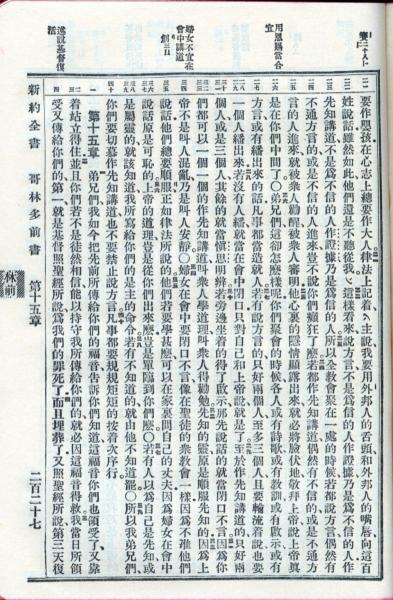 第二十八卜
用恩賜當合
宜
婦女不宜在
會中講道
創三·
述說基督復
活
要作嬰孩在心志上總要作大人律法上記着主說我要用外邦人的舌頭和外邦人的嘴唇向這百
姓說話雖然如此他們還是不聽從我這樣看來說方言不是爲信的人作證據乃是爲不信的人作
先知講道不是爲不信的人作證據乃是爲信的人所以全敎會聚在一處的時候若都說方言偶然有
不通方言的或是不信的人進來豈不說你們癲狂了麽若都作先知講道偶然有不信的或是不通方
言的人進來就被衆人勸醒被衆人審明他心裏的隱情顯露出來就必將臉伏地敬拜上帝說上帝眞
是在你們中間了○弟兄們這却怎麽樣呢你們聚會的時候各人或有詩歌或有敎訓或有啟示或有
方言或有繙出來的話凡事都當造就人若有說方言的只好兩個人至多三個人且要輪流着說也要
一個人繙出來若沒有人繙就當在會中閉口只對自己和上帝說就是了至於作先知講道的只好兩
個人或是三個人其餘的就當愼思明辨若旁邊坐着的得了啟示那先說話的就當閉口不言因爲你
們都可以一個一個的作先知講道叫衆人學道理叫衆人得勸勉先知的靈原是順服先知的因爲上
帝不是叫人混亂乃是叫人安靜○婦女在會中要閉口不言像在聖徒的衆敎會一樣因爲不准他們
說話他們總要順服正如律法所說的他們若要學甚麽可以在家裏問自己的丈夫因爲婦女在會中
說話原是可恥的上帝的道理豈是從你們出來麽豈是單臨到你們麽○若有人以爲自己是先知或
是屬靈的就該知道我所寫給你們的是主的命令若有不知道的就由他不知道罷○所以我弟兄們
你們要切慕作先知講道也不要禁止說方言凡事都要規規矩矩的按着次序行
第十五章 弟兄們我如今把先前所傳給你們的福音告訴你們知道這福音你們也領受了又靠
着站立得住並且你們若不是徒然相信能以持守我所傳給你們的就必因這福音得救我當日所領
受又傳給你們的第一就是基督照聖經所說爲我們的罪死了而且埋葬了又照聖經所說第三天復
新約全書 哥林多前書 第十五章 二百二十七
林前